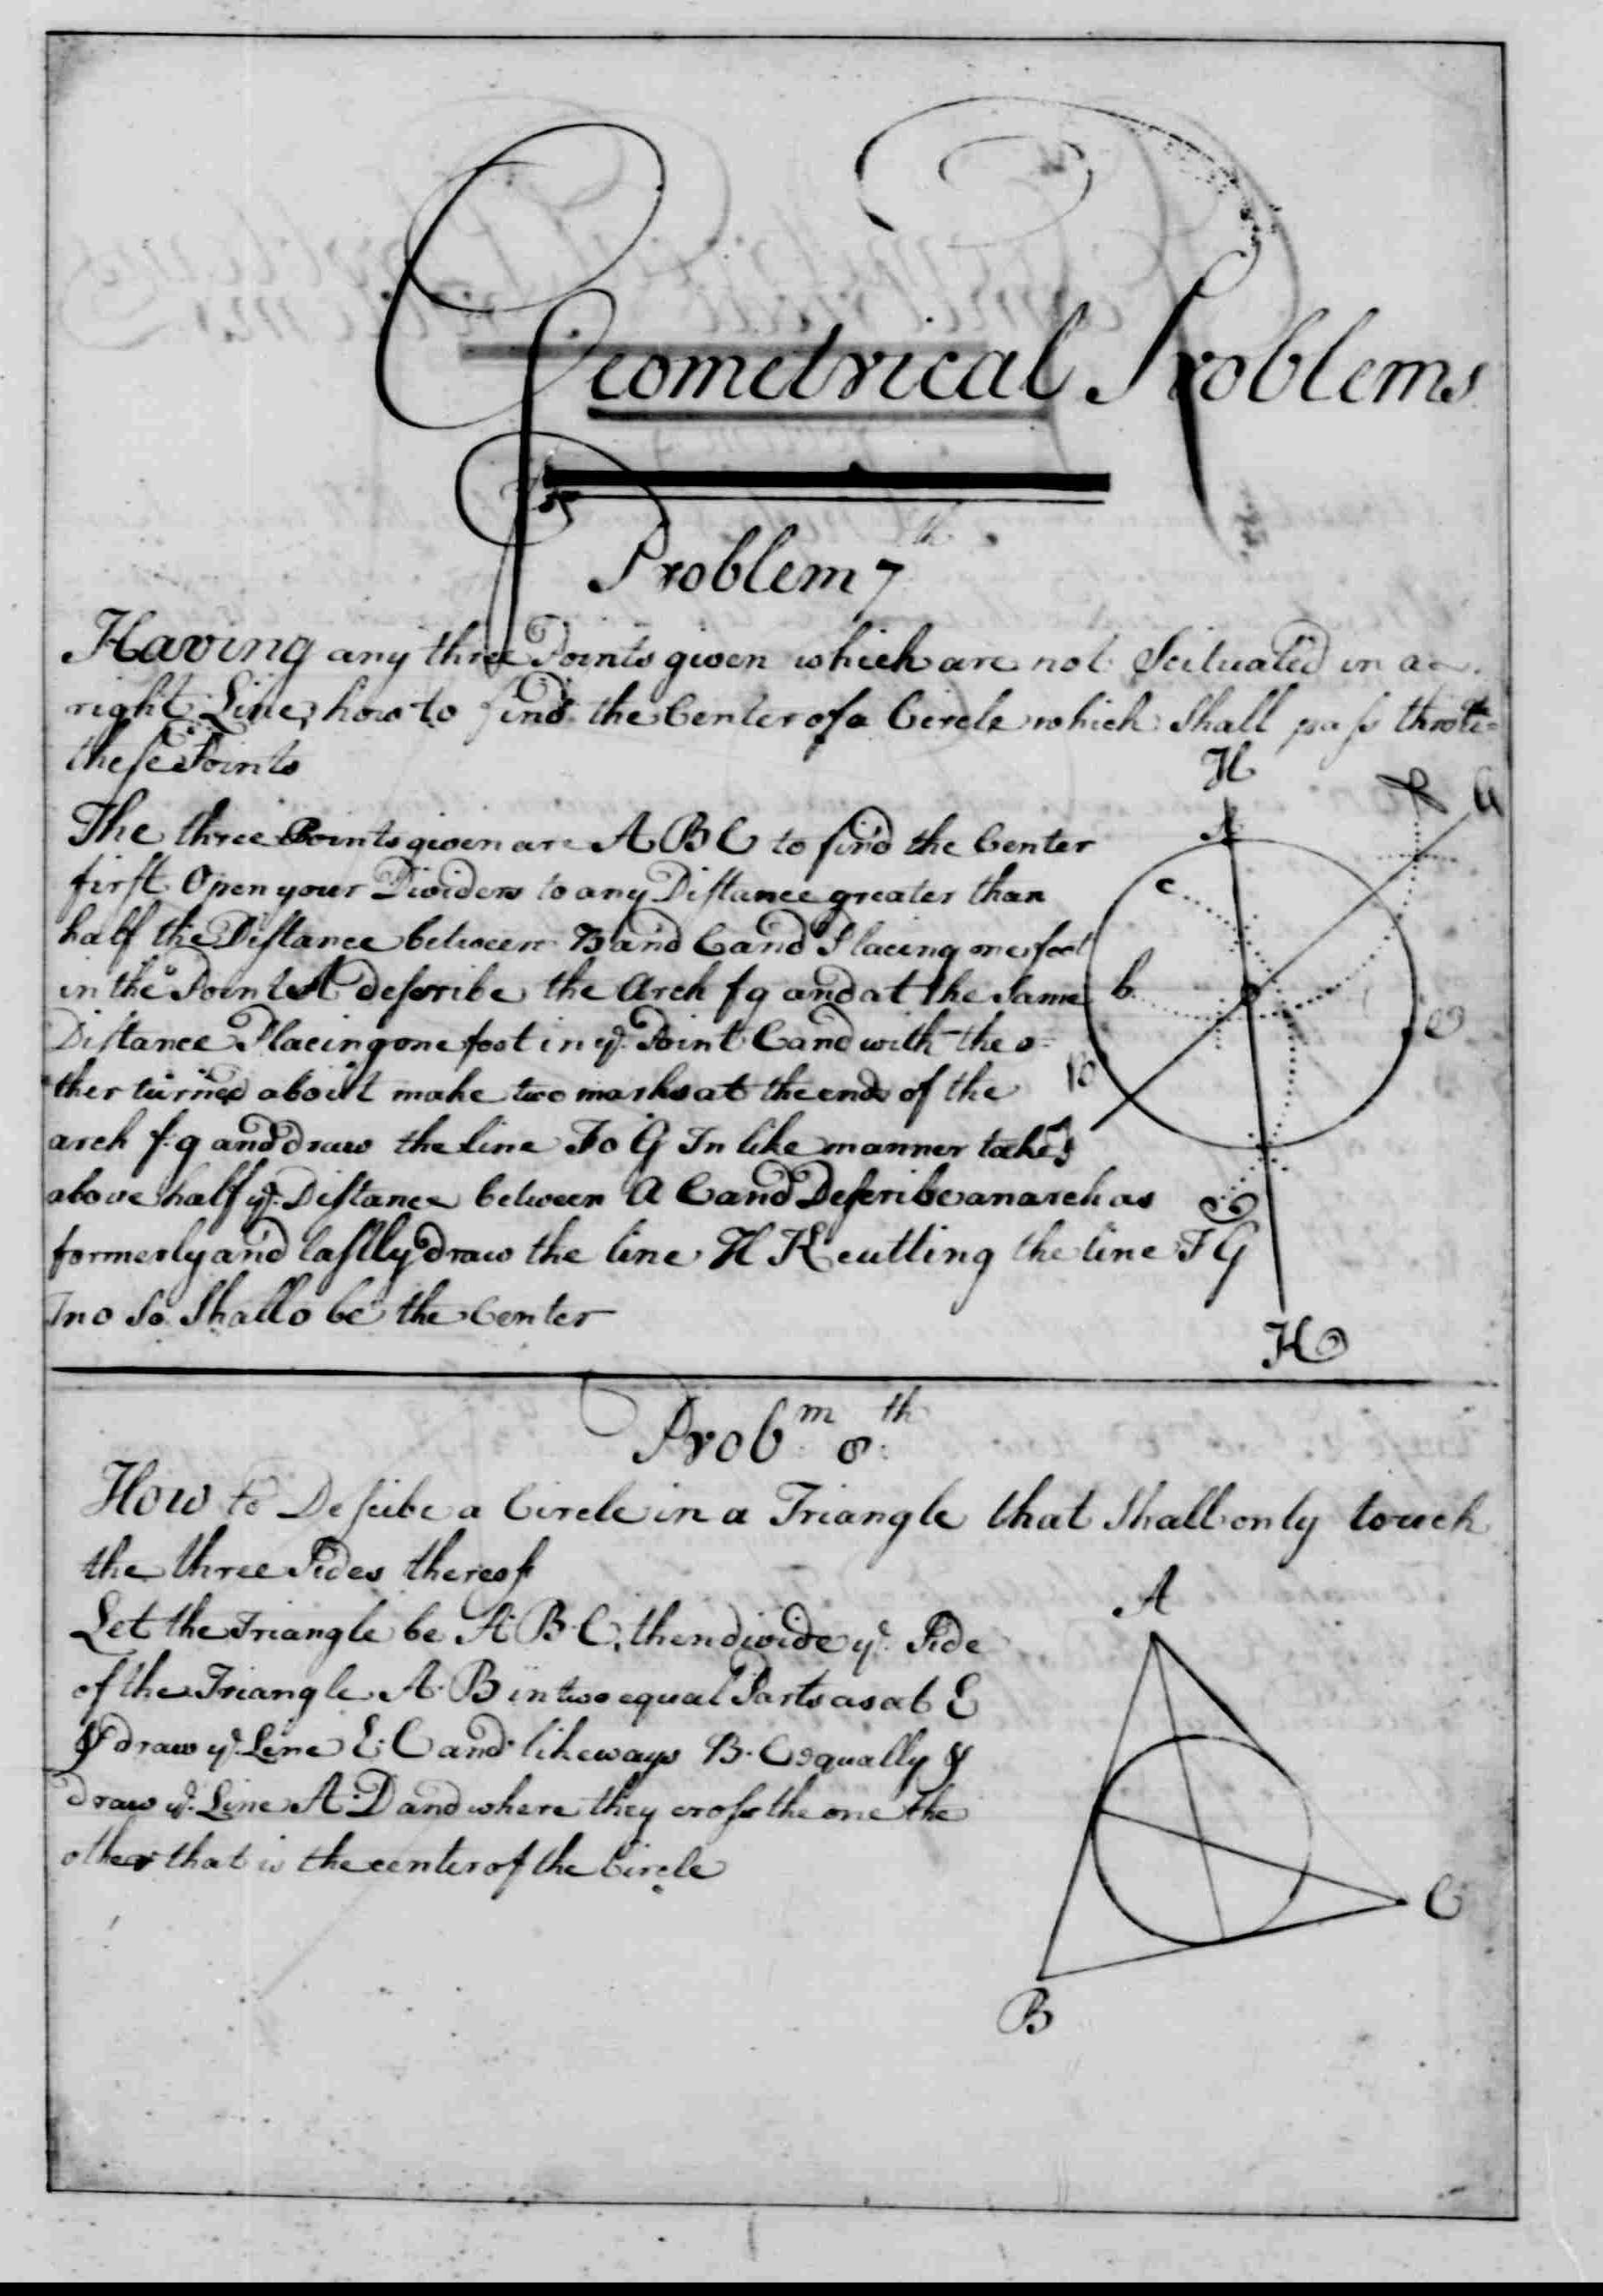 Geometrical Problems
Problem 7th
Having any three Points given which are not Scituated in a
right Line, how to find the Center of a Circle which Shall pass thro
these Points
The three Points given are A B C to find the Center
first Open your Dividers to any Distance greater than
half the Distance between B and C and Placing one foot
in the Point A describe the Arch f g and at the Same
Distance Placing one foot in ye. Point C and with the o=
ther turned about make two marks at the ends of the
arch f:g and draw the line F o G In like manner take
above half ye. Distance between A C and Describe an arch as
formerly and lastly draw the line H K cutting the line F G
In o So Shall o be the Center
H
G
A
c
b
B
H
Probm. 8.th
How to Descibe a Circle in a Triangle that Shall only touch
the three Sides thereof
Let the Triangle be A B C, then divide ye. Side
of the Triangle A B in two equal Parts as at E
& draw ye. Line E C and likeways B C equally &
draw ye. Line A D and where they cross the one the
other that is the center of the Circle
A
C
B